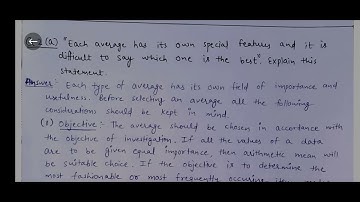 (a) "Each average has its own special features and it is
difficult to say which one is the best". Explain this
statement.
Answer: Each type of average has its own field of importance and
usefulness. Before selecting an average all the following
considerations should be kept in mind
(1) Objective :- The average should be chosen in accordance with
the objective of investigation. If all the values of a data
are to be given equal importance, then arithmetic mean will
be suitable choice. If the objective is to determine the
most fashionable or most frequently occuring